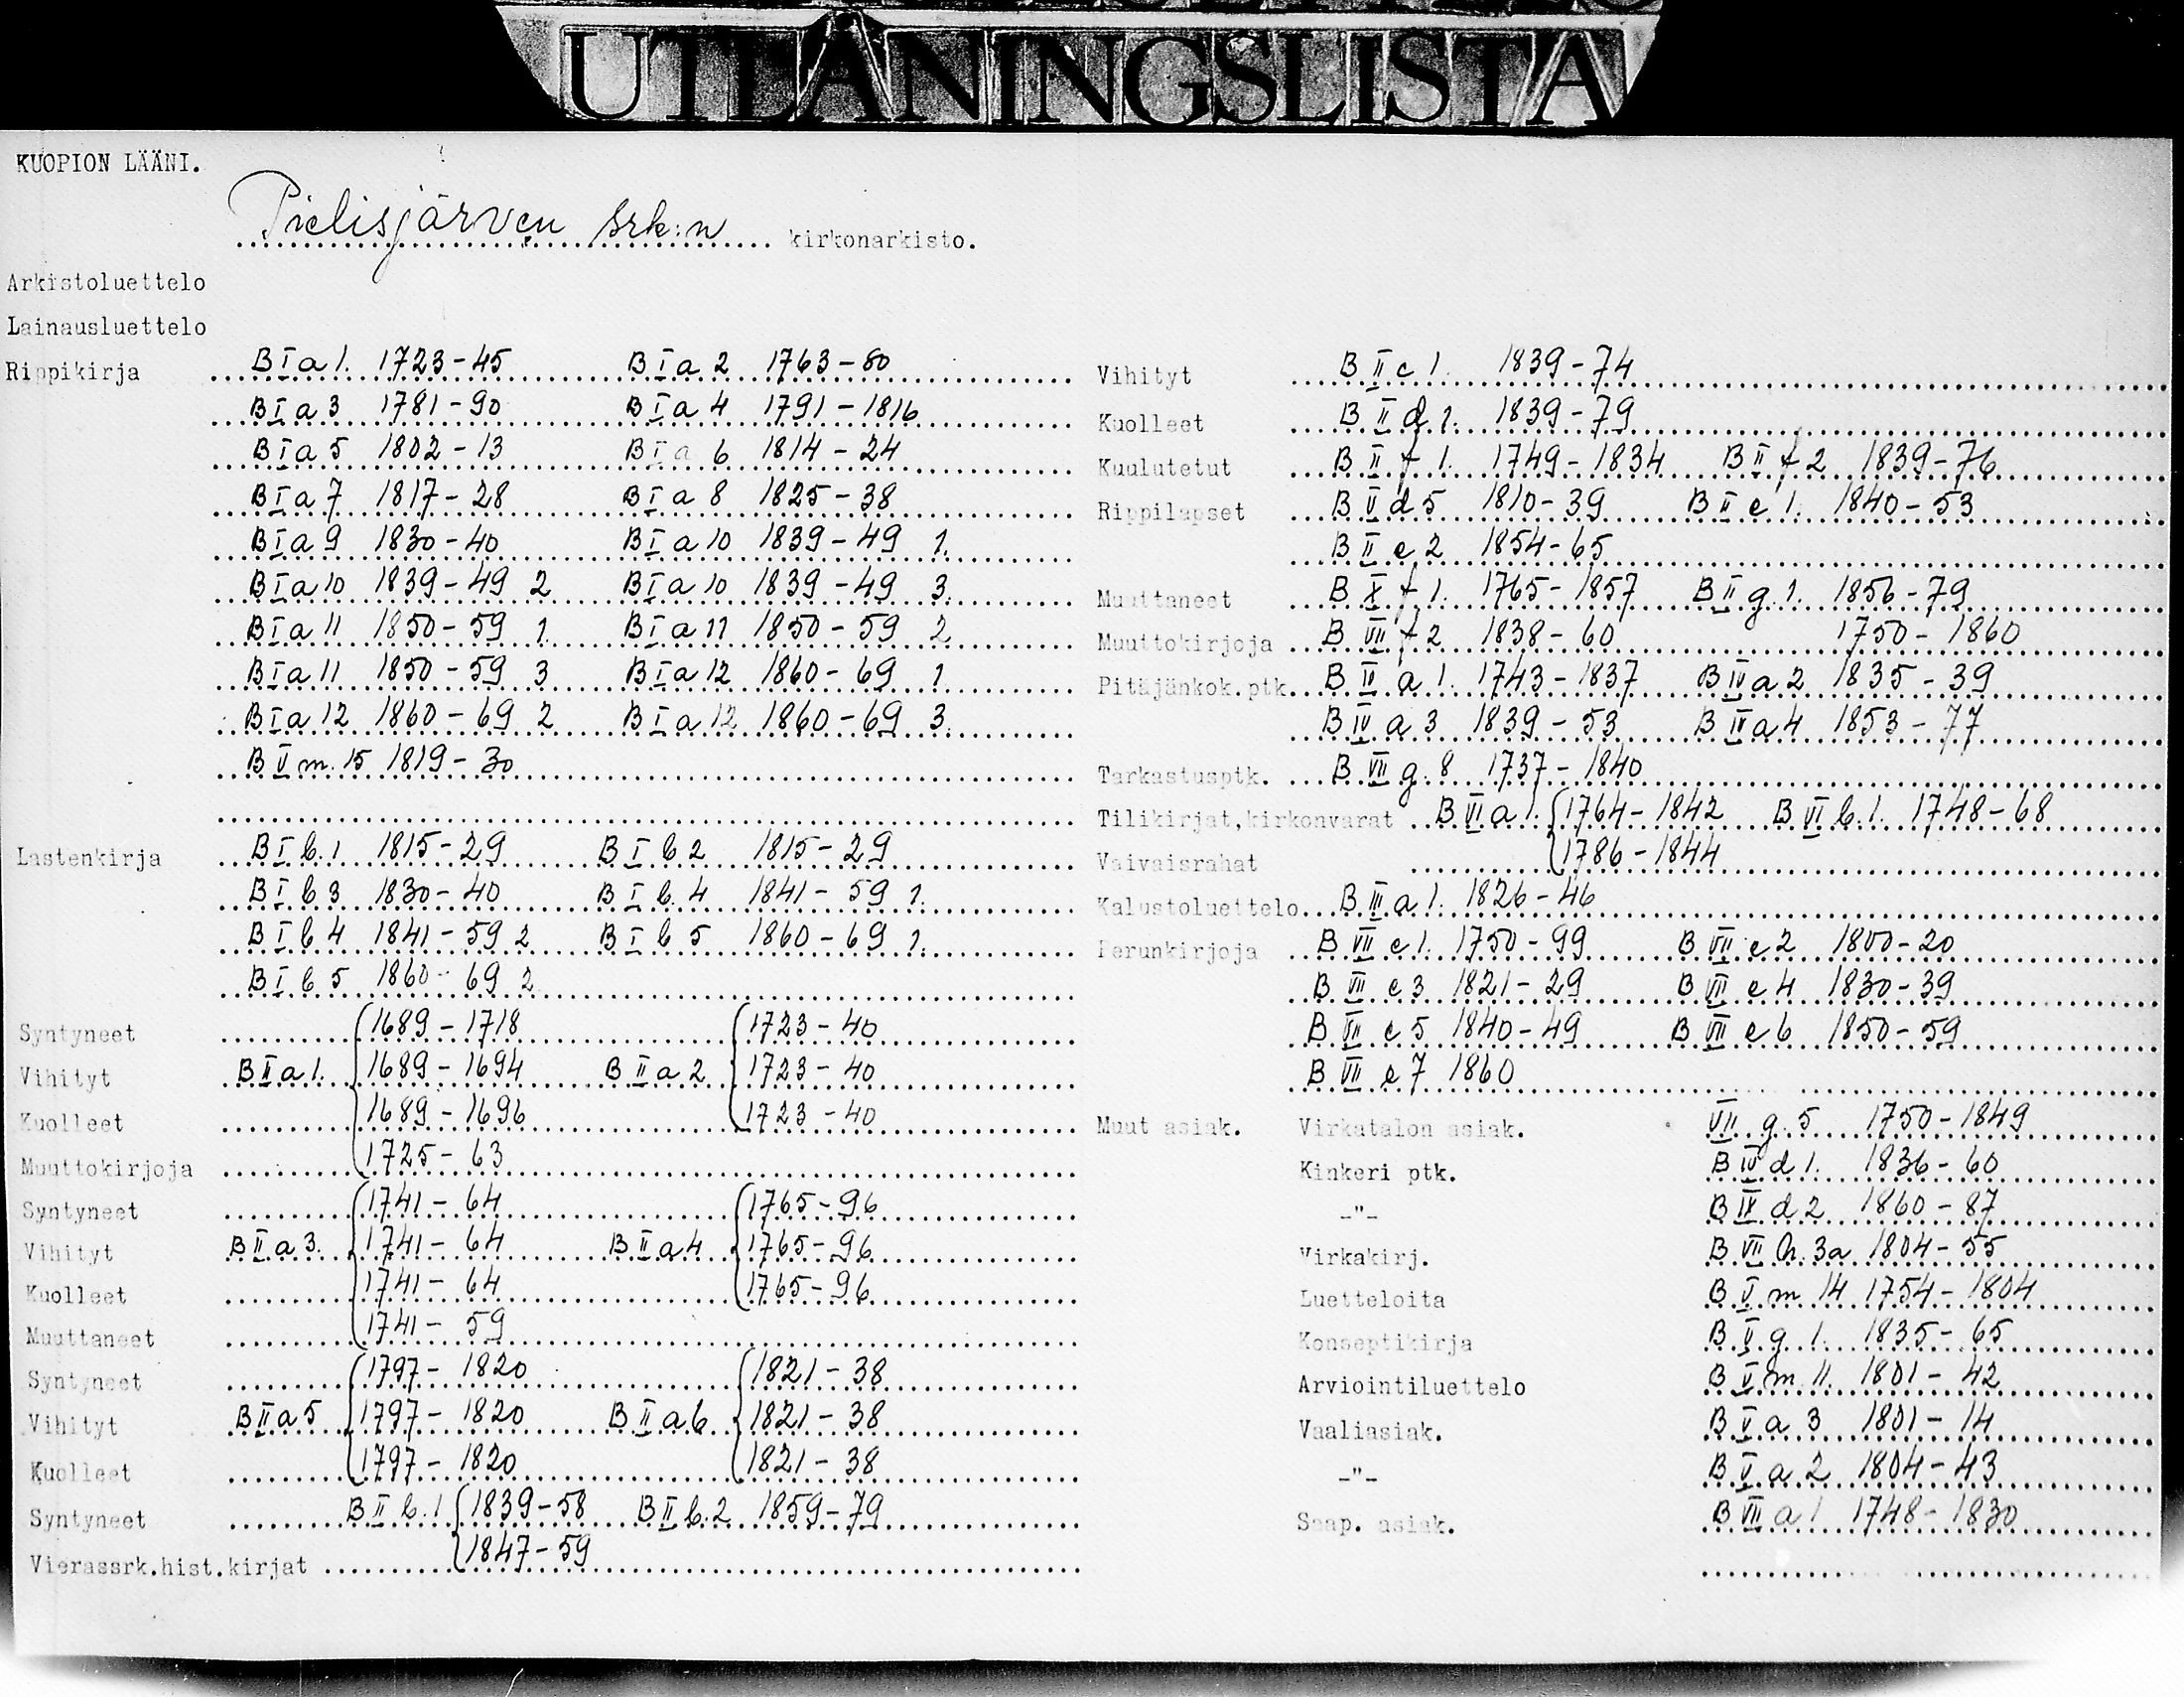 UTLÅNINGSLISTA
KUOPION LÄÄNI.
Pielisjärven srk:n kirkonarkisto.
Arkistoluettelo
Lainausluettelo
Rippikirja B I a 1. 1723-45 B I a 2 1763-80
B I a 3 1781-90 B I a 4 1791-1816
B I a 5 1802-13 B I a 6 1814-24
B I a 7 1817-28 B I a 8 1825-38
B I a 9 1830-40 B I a 10 1839-49 1.
B I a 10 1839-49 2 B I a 10 1839-49 3.
B I a 11 1850-59 1. B I a 11 1850-59 2
B I a 11 1850-59 3 B I a 12 1860-69 1
B I a 12 1860-69 2 B I a 12 1860-69 3.
B V m. 15 1819-30
Lastenkirja B I b. 1 1815-29 B I b 2 1815-29
B I b 3 1830-40 B I b. 4 1841-59 1.
B I b 4 1841-59 2 B I b 5 1860-69 1.
B I b 5 1860-69 2
Syntyneet 1689-1718 1723-40
Vihityt B II a 1. 1689-1694 B II a 2 1723-40
Kuolleet 1689-1696 1723-40
Muuttokirjoja 1725-63
Syntyneet 1741-64 1765-96
Vihityt B II a 3. 1741-64 B II a 4 1765-96
Kuolleet 1741-64 1765-96
Muuttaneet 1741-59
Syntyneet 1797-1820 1821-38
Vihityt B II a 5 1797-1820 B II a 6 1821-38
Kuolleet 1797-1820 1821-38
Syntyneet B II b. 1 1839-58 B II b. 2 1859-79
Vierassrk.hist.kirjat 1847-59
Vihityt B II c 1. 1839-74
Kuolleet B II d 1. 1839-79
Kuulutetut B II f 1. 1749-1834 B II f 2 1839-76
Rippilapset B V d 5 1810-39 B II e 1. 1840-53
B II e 2 1854-65
Muuttaneet B X f 1. 1765-1857 B II g. 1. 1856-79
Muuttokirjoja B VII f 2 1838-60 1750-1860
Pitäjänkok.ptk. B IV a 1. 1743-1837 B IV a 2 1835-39
B IV a 3 1839-53 B IV a 4 1853-77
Tarkastusptk. B VII g. 8 1737-1840
Tilikirjat,kirkonvarat B VI a 1. 1764-1842 B VI b. 1. 1748-68
Vaivaisrahat 1786-1844
Kalustoluettelo B III a 1. 1826-46
Perunkirjoja B VII e 1. 1750-99 B VII e 2 1800-20
B VII e 3 1821-29 B VII e 4 1830-39
B VII e 5 1840-49 B VII e 6 1850-59
B VII e 7 1860
Muut asiak. Virkatalon asiak. VII g. 5 1750-1849
Kinkeri ptk. B IV d 1. 1836-60
-"- B IV d 2 1860-87
Virkakirj. B VII h. 3a 1804-55
Luetteloita B V m 14 1754-1804
Konseptikirja B V g. 1. 1835-65
Arviointiluettelo B V m 11. 1801-42
Vaaliasiak. B V a 3 1801-14
-"- B V a 2 1804-43
Saap. asiak. B VII a 1 1748-1830